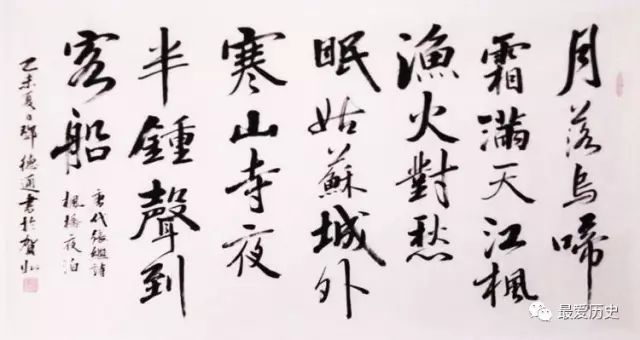 月落烏啼
霜滿天江楓
漁火對愁
眠姑蘇城外
寒山寺夜
半鍾聲到
客船
唐代張繼詩
楓橋夜泊
乙未夏日鄧德通書於賀
最爱历史